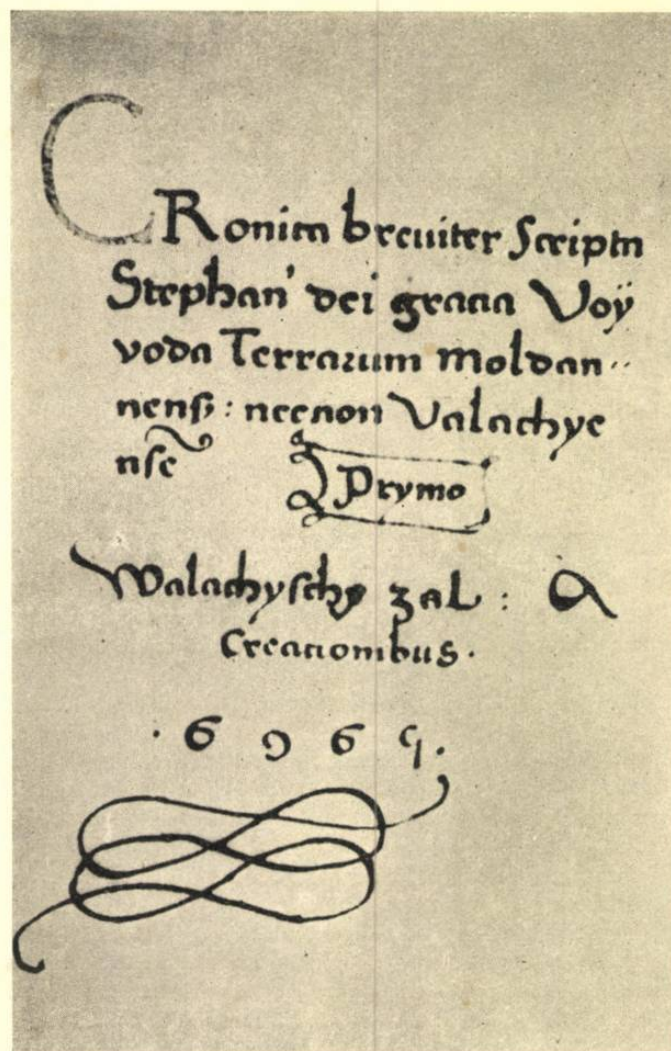 CRonica breuiter Scripta
Stephan' dei gracia Voÿ
voda Terrarum moldan⸗
nens̄ : necnon Valachye
nse
Prymo
Walachysche zal : A
Creacionibus .
. 6 9 6 5 .